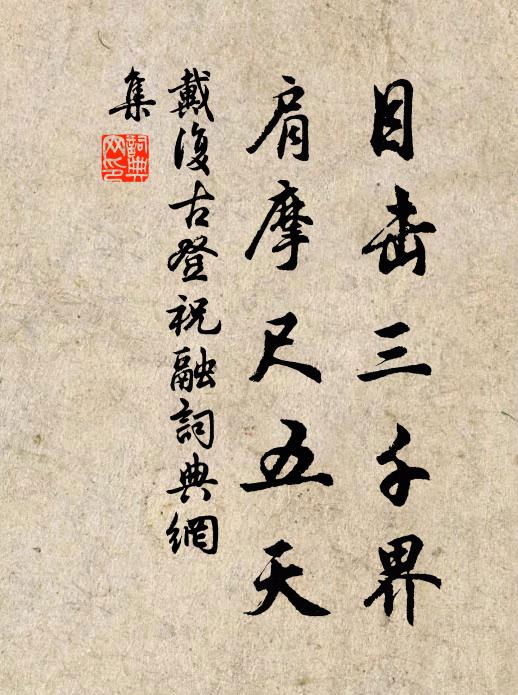 目击三千界
肩摩尺五天
戴復古登祝融詞典網
集
詞典
网印